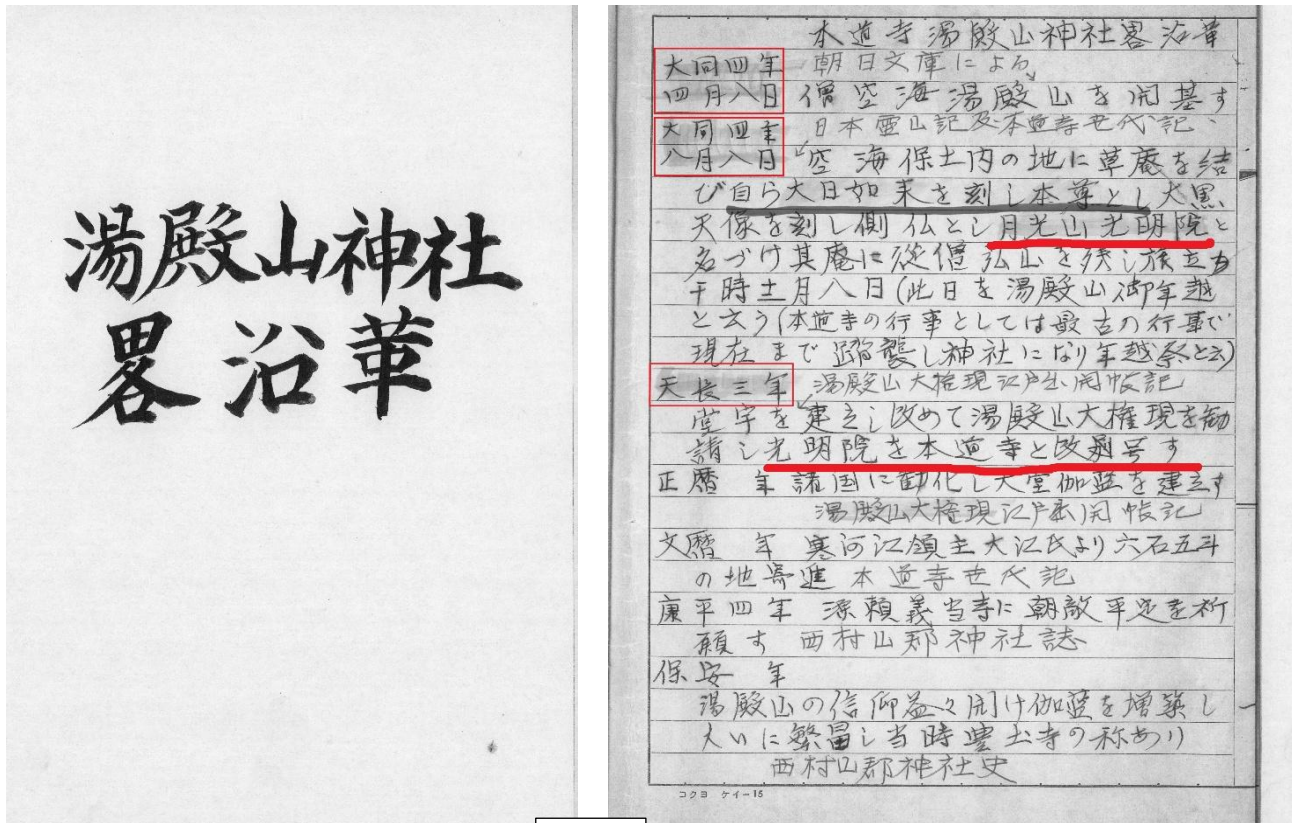 湯殿山神社
畧沿革
本道寺湯殿山神社畧沿革
大同四年 朝日文庫による
四月八日 僧空海湯殿山を開基す
大同四年 日本霊山記及本道寺世代記
八月八日 空海保土内の地に草庵を結
び自ら大日如来を刻し本尊とし大黒
天像を刻し側仏とし月光山光明院と
名づけ其庵に従僧弘山を残し旅立つ
干時士月八日(此日を湯殿山御年越
と云う(本道寺の行事としては最古の行事で
現在まで踏襲し神社になり年越祭と云)
天長三年 湯殿山大権現江戸出開帳記
堂宇を建立し改めて湯殿山大権現を勧
請し光明院を本道寺と改称号す
正暦 年 諸国に勧化し大堂伽藍を建立す
湯殿山大権現江戸出開帳記
文暦 年 寒河江領主大江氏より六石五斗
の地寄進 本道寺世代記
康平四年 源頼義当寺に朝敵平定を祈
願す 西村山郡神社誌
保安 年
湯殿山の信仰益々開け伽藍を増築し
大いに繁畐し当時豊土寺の称あり
西村山郡神社史
コクヨ ケイー15